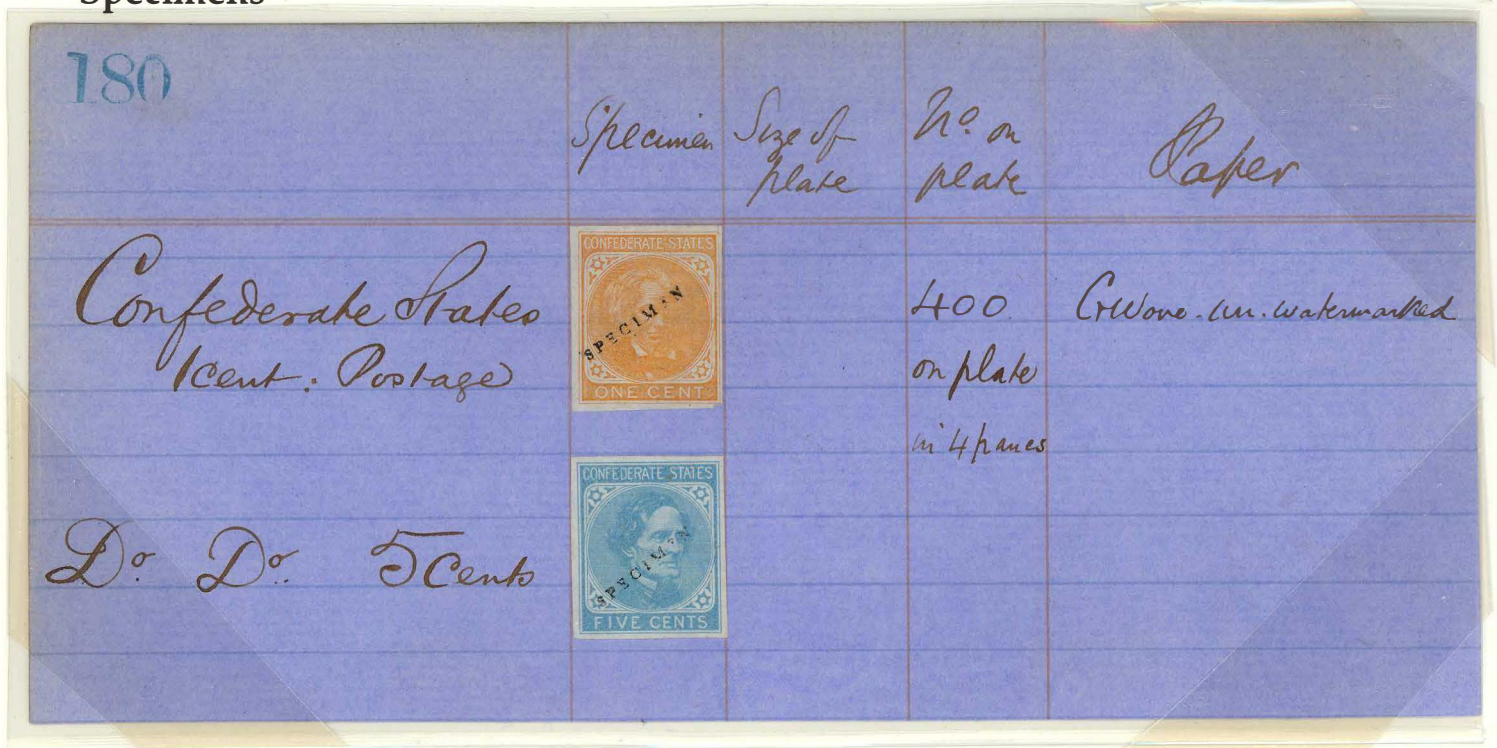 Specimens
180
Specimen
Size of
plate
No. on
plate
Paper
Confederate States
1 cent : Postage
CONFEDERATE STATES
SPECIMEN
ONE CENT
400
on plate
in 4 panes
Wove. un. watermarked
Do Do. 5 Cents
CONFEDERATE STATES
SPECIMEN
FIVE CENTS